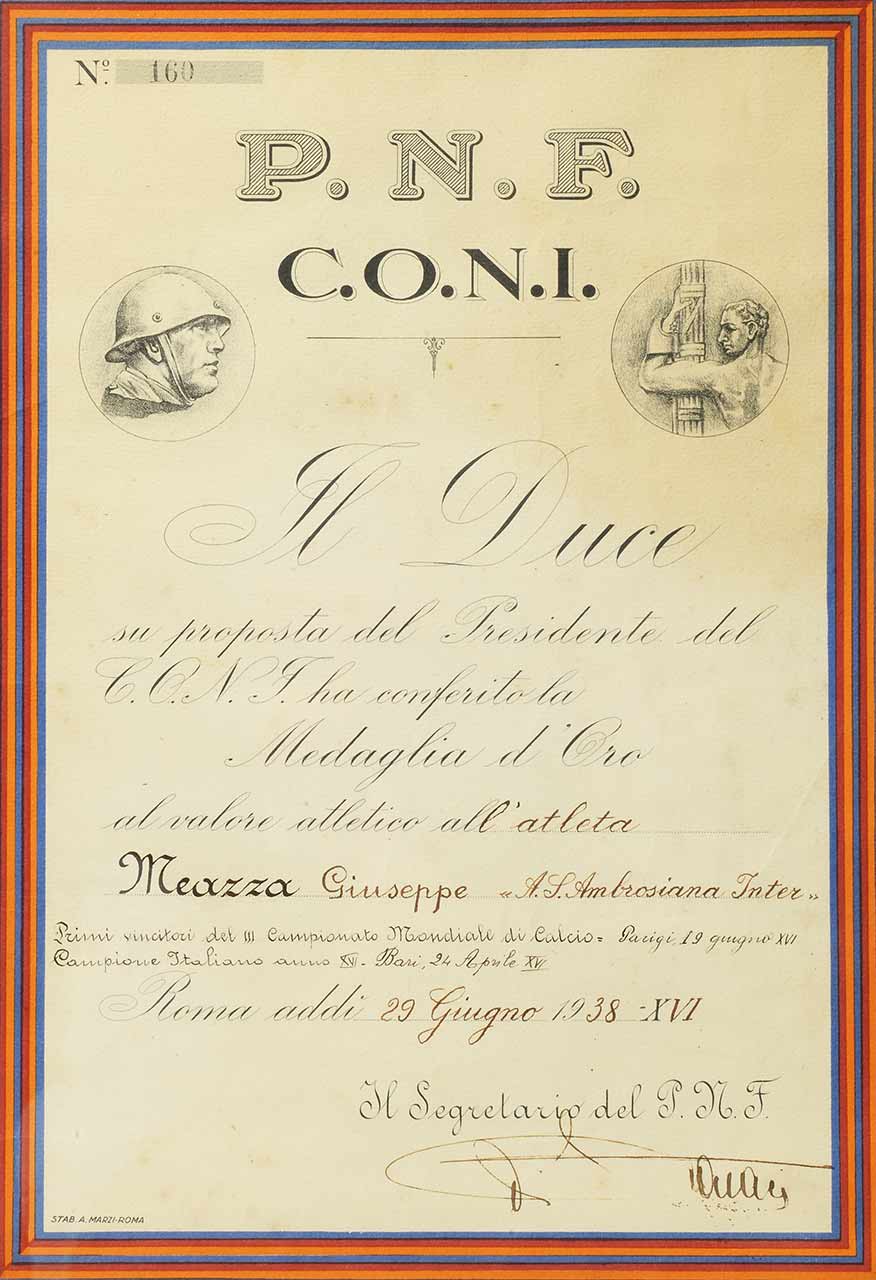 Nº. 160
P. N. F.
C.O.N.I.
Il Duce
su proposta del Presidente del
C. O. N. I. ha conferito la
Medaglia d'Oro
al valore atletico all'atleta
Meazza Giuseppe «A.S. Ambrosiana Inter»
Primi vincitori del III Campionato Mondiale di Calcio = Parigi, 19 giugno XVI
Campione Italiano anno XVI - Bari, 24 Aprile XVI
Roma addì 29 Giugno 1938 -XVI
Il Segretario del P. N. F.
STAB. A. MARZI-ROMA